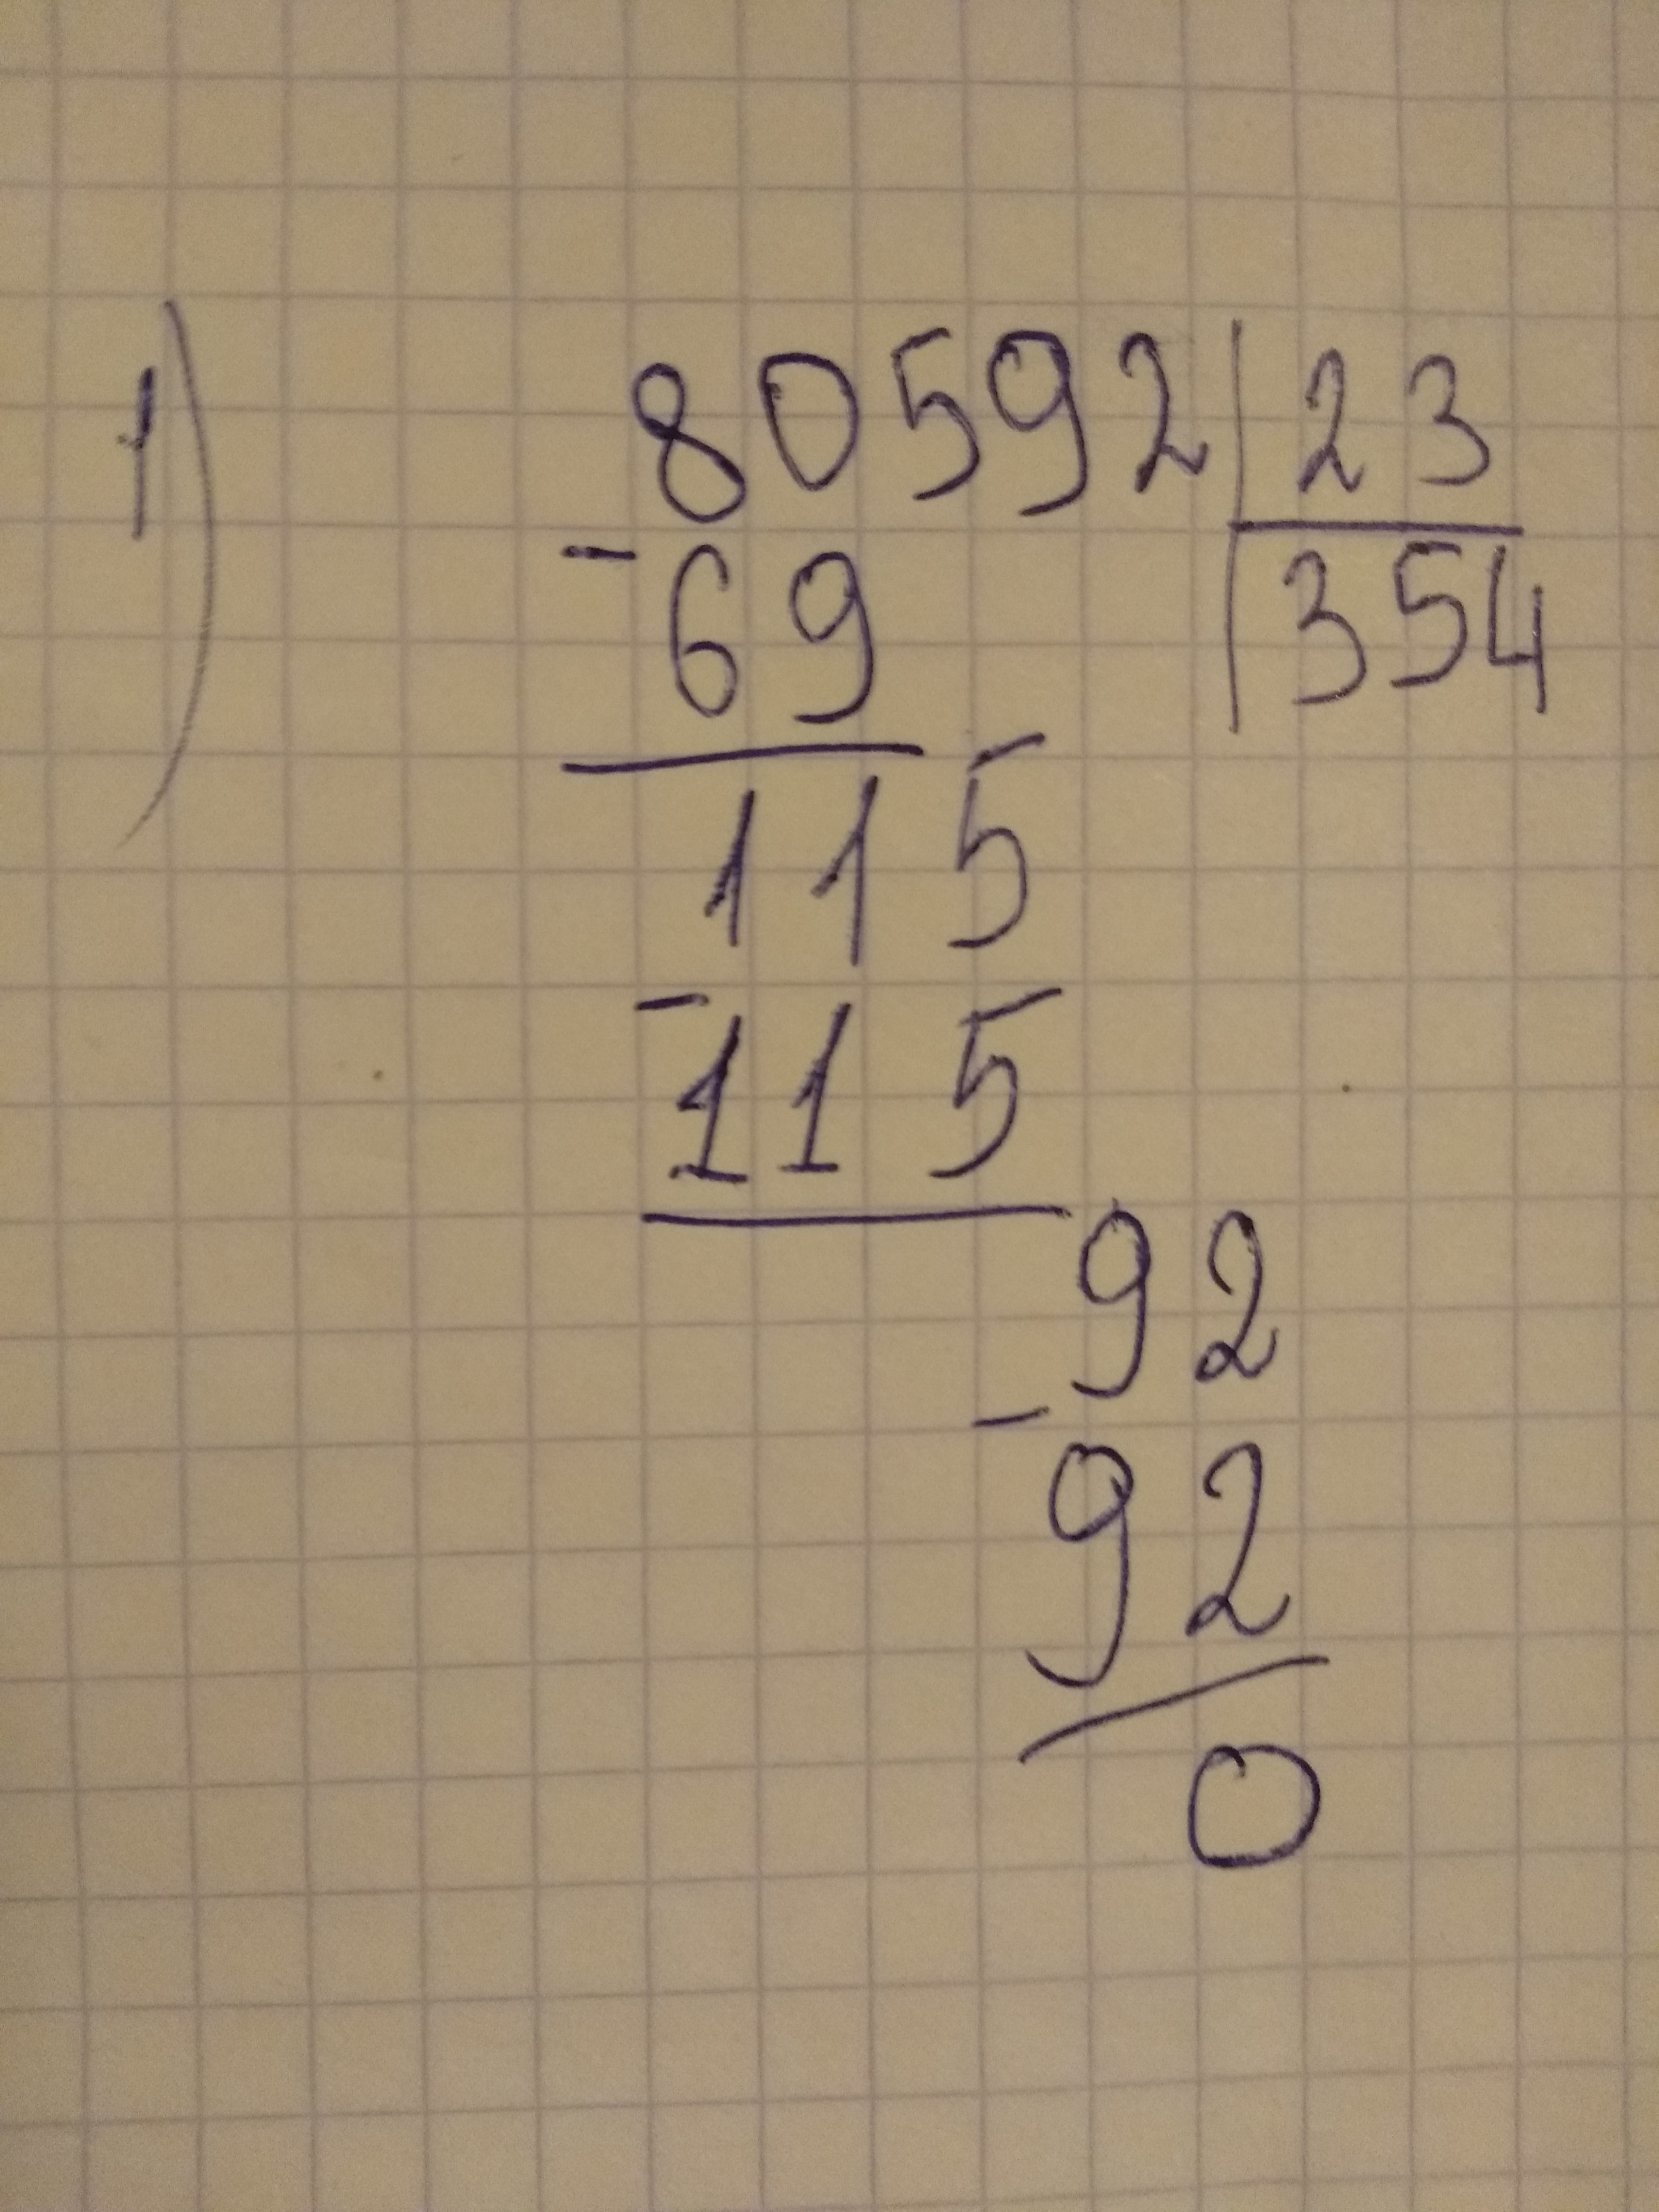 1) 80592 | 23
- 69 | 354
115
- 115
92
- 92
0